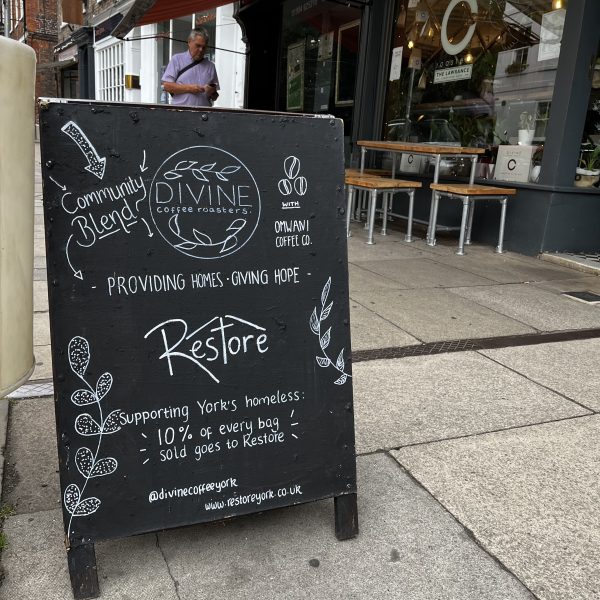 Community
Blend
DIVINE
coffee roasters.
WITH
OMWANI
COFFEE CO.
- PROVIDING HOMES · GIVING HOPE -
Restore
Supporting York's homeless:
10% of every bag
sold goes to Restore
@divinecoffeeyork
www.restoreyork.co.uk
C
THE LAWRANCE
C